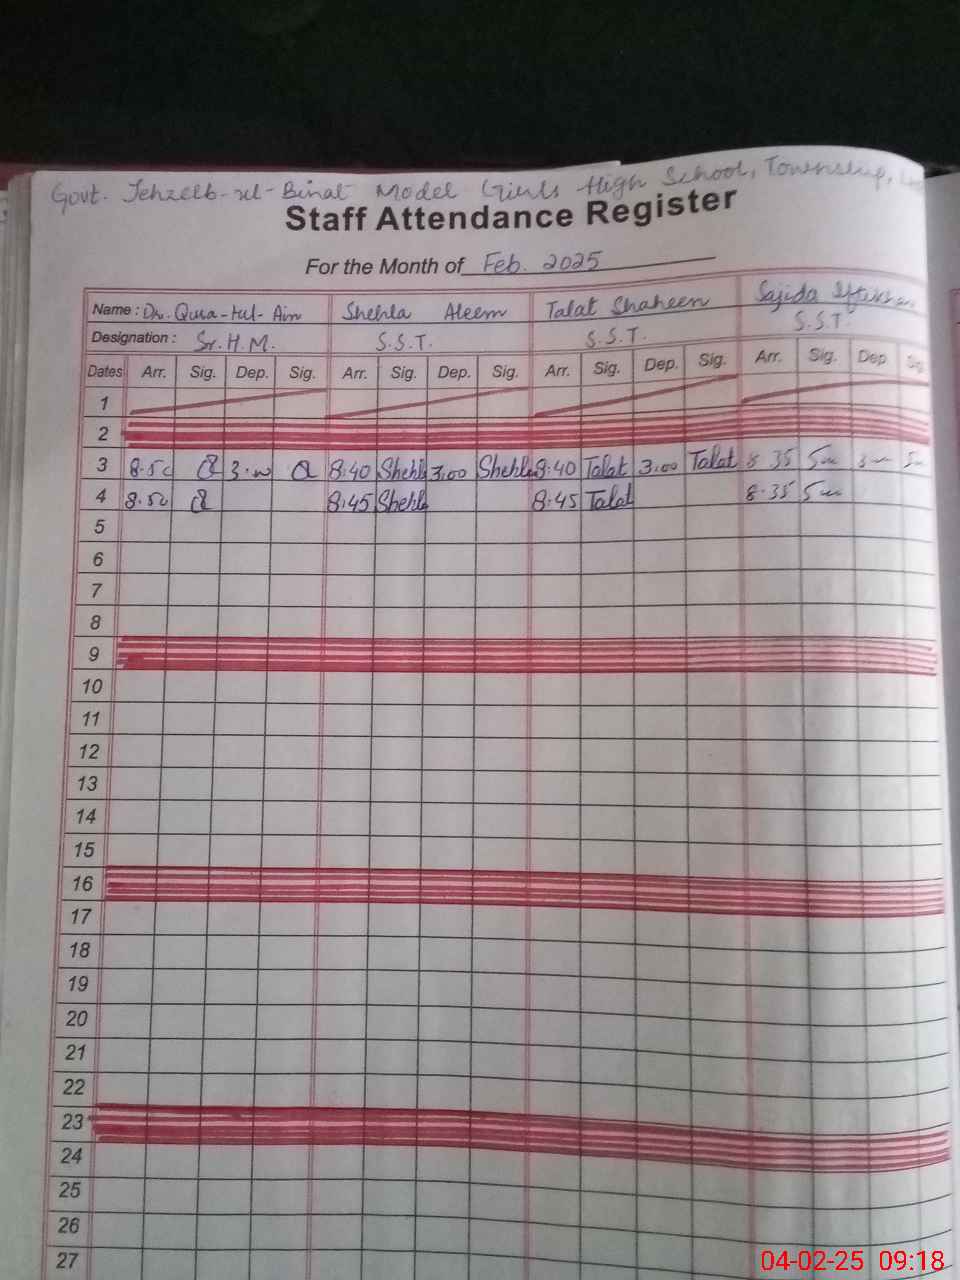 Govt. Tehzeeb-ul-Binat Model Girls High School, Township,
Staff Attendance Register
For the Month of Feb. 2025
Name : Dr. Qura-tul-Ain Shehla Aleem Talat Shaheen Sajida Iftikhar
Designation : Sr. H.M. S.S.T. S.S.T. S.S.T.
Dates Arr. Sig. Dep. Sig. Arr. Sig. Dep. Sig. Arr. Sig. Dep. Sig. Arr. Sig. Dep. Sig.
1
2
3 8.50 3.00 8:40 Shehla 3.00 Shehla 8:40 Talat 3.00 Talat 8 35
4 8.50 8:45 Shehla 8:45 Talat 8.35
5
6
7
8
9
10
11
12
13
14
15
16
17
18
19
20
21
22
23
24
25
26
27
04-02-25 09:18